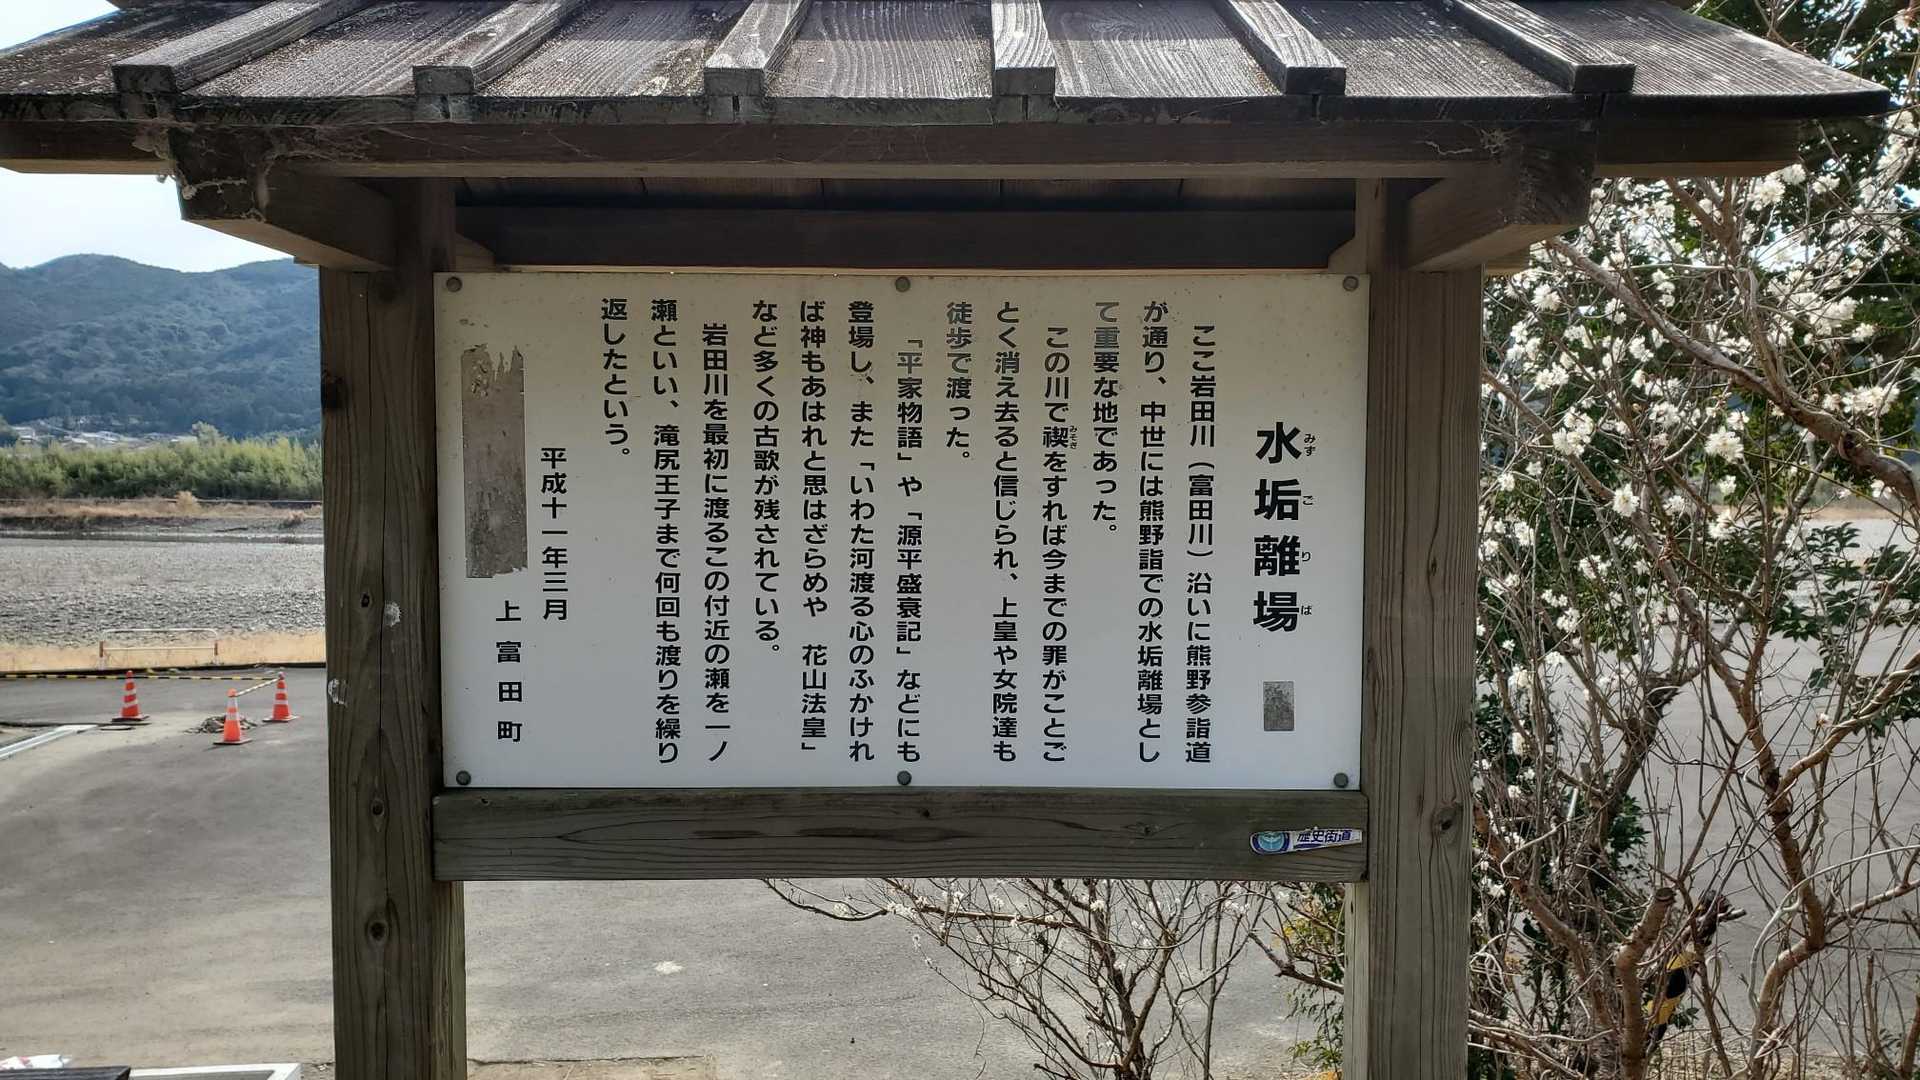 水垢離場
みずごりば
ここ岩田川（富田川）沿いに熊野参詣道
が通り、中世には熊野詣での水垢離場とし
て重要な地であった。
この川で禊をすれば今までの罪がことご
みそぎ
とく消え去ると信じられ、上皇や女院達も
徒歩で渡った。
「平家物語」や「源平盛衰記」などにも
登場し、また「いわた河渡る心のふかけれ
ば神もあはれと思はざらめや　花山法皇」
など多くの古歌が残されている。
岩田川を最初に渡るこの付近の瀬を一ノ
瀬といい、滝尻王子まで何回も渡りを繰り
返したという。
平成十一年三月
上富田町
歴史街道